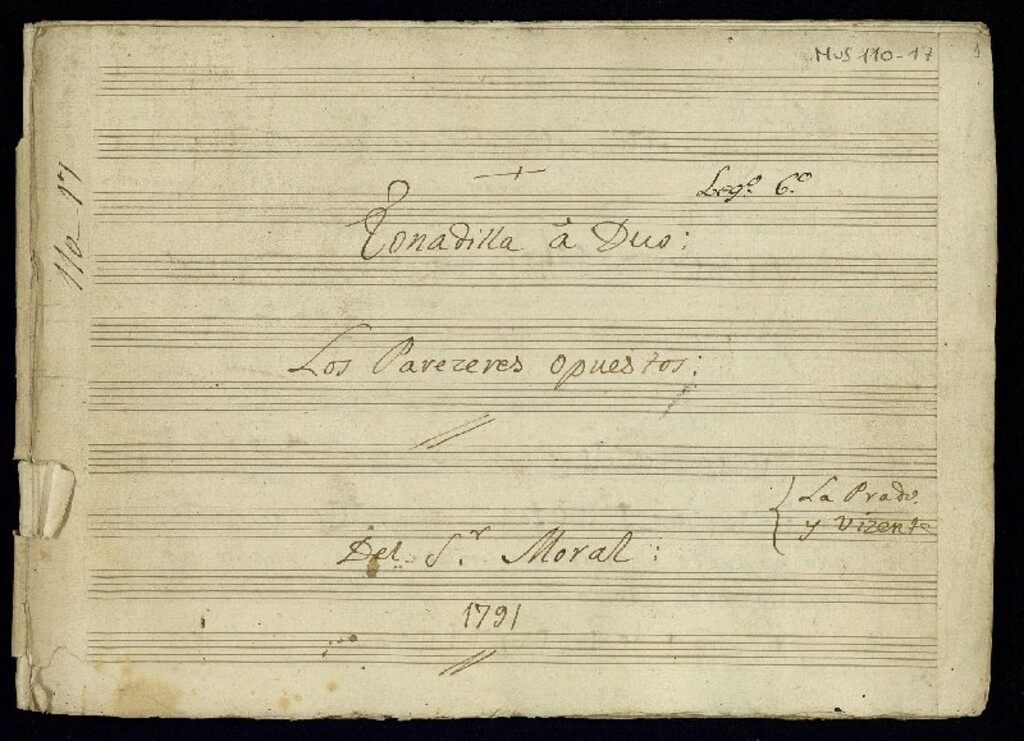 MUS 110-17
1
110-17
Leg.º 6.º
Tonadilla â Duo:
Los Parezeres opuestos;
La Prado.
y Vizente
Del S.r Moral:
1791